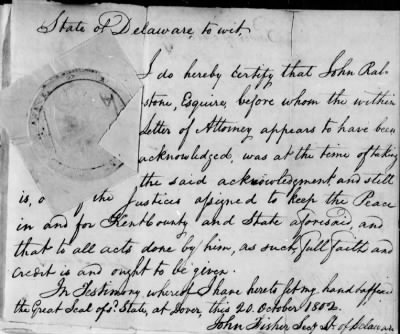 State of Delaware, to wit.
I do hereby certify that John Ral-
stone, Esquire, before whom the within
Letter of Attorney appears to have been
acknowledged, was at the time of taking
the said acknowledgment, and still
is, o the Justices assigned to keep the Peace
in and for Kent County and State aforesaid, and
that to all acts done by him, as such, full faith and
credit is and ought to be given.
In Testimony whereof I have hereto set my hand & affixed
the Great Seal of sd. State, at Dover, this 20. October 1802.
John Fisher Secy St. of Delaware